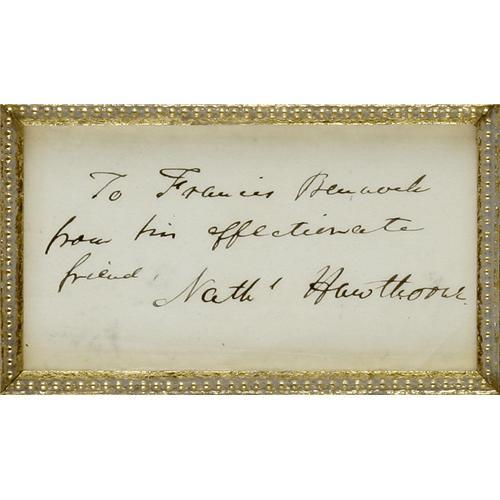 To Francis Bennoch
from his affectionate
friend,
Nathl Hawthorne.